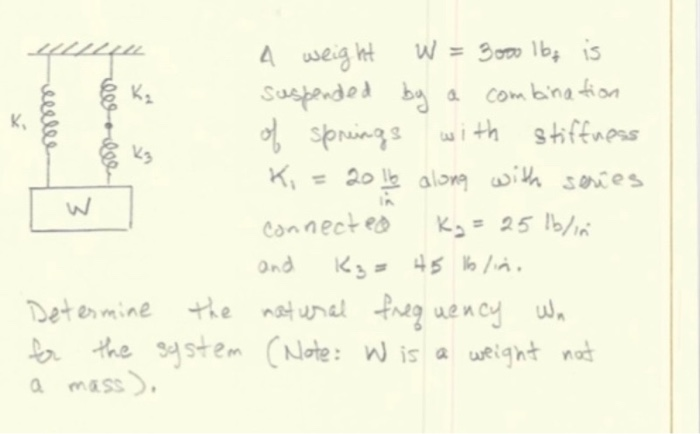 A weight W = 3000 lbf is
suspended by a combination
of springs with stiffness
K1 = 20 lb/in along with series
connected K2 = 25 lb/in
and K3 = 45 lb/in.
Determine the natural frequency ωn
for the system (Note: W is a weight not
a mass).
K1
K2
K3
W